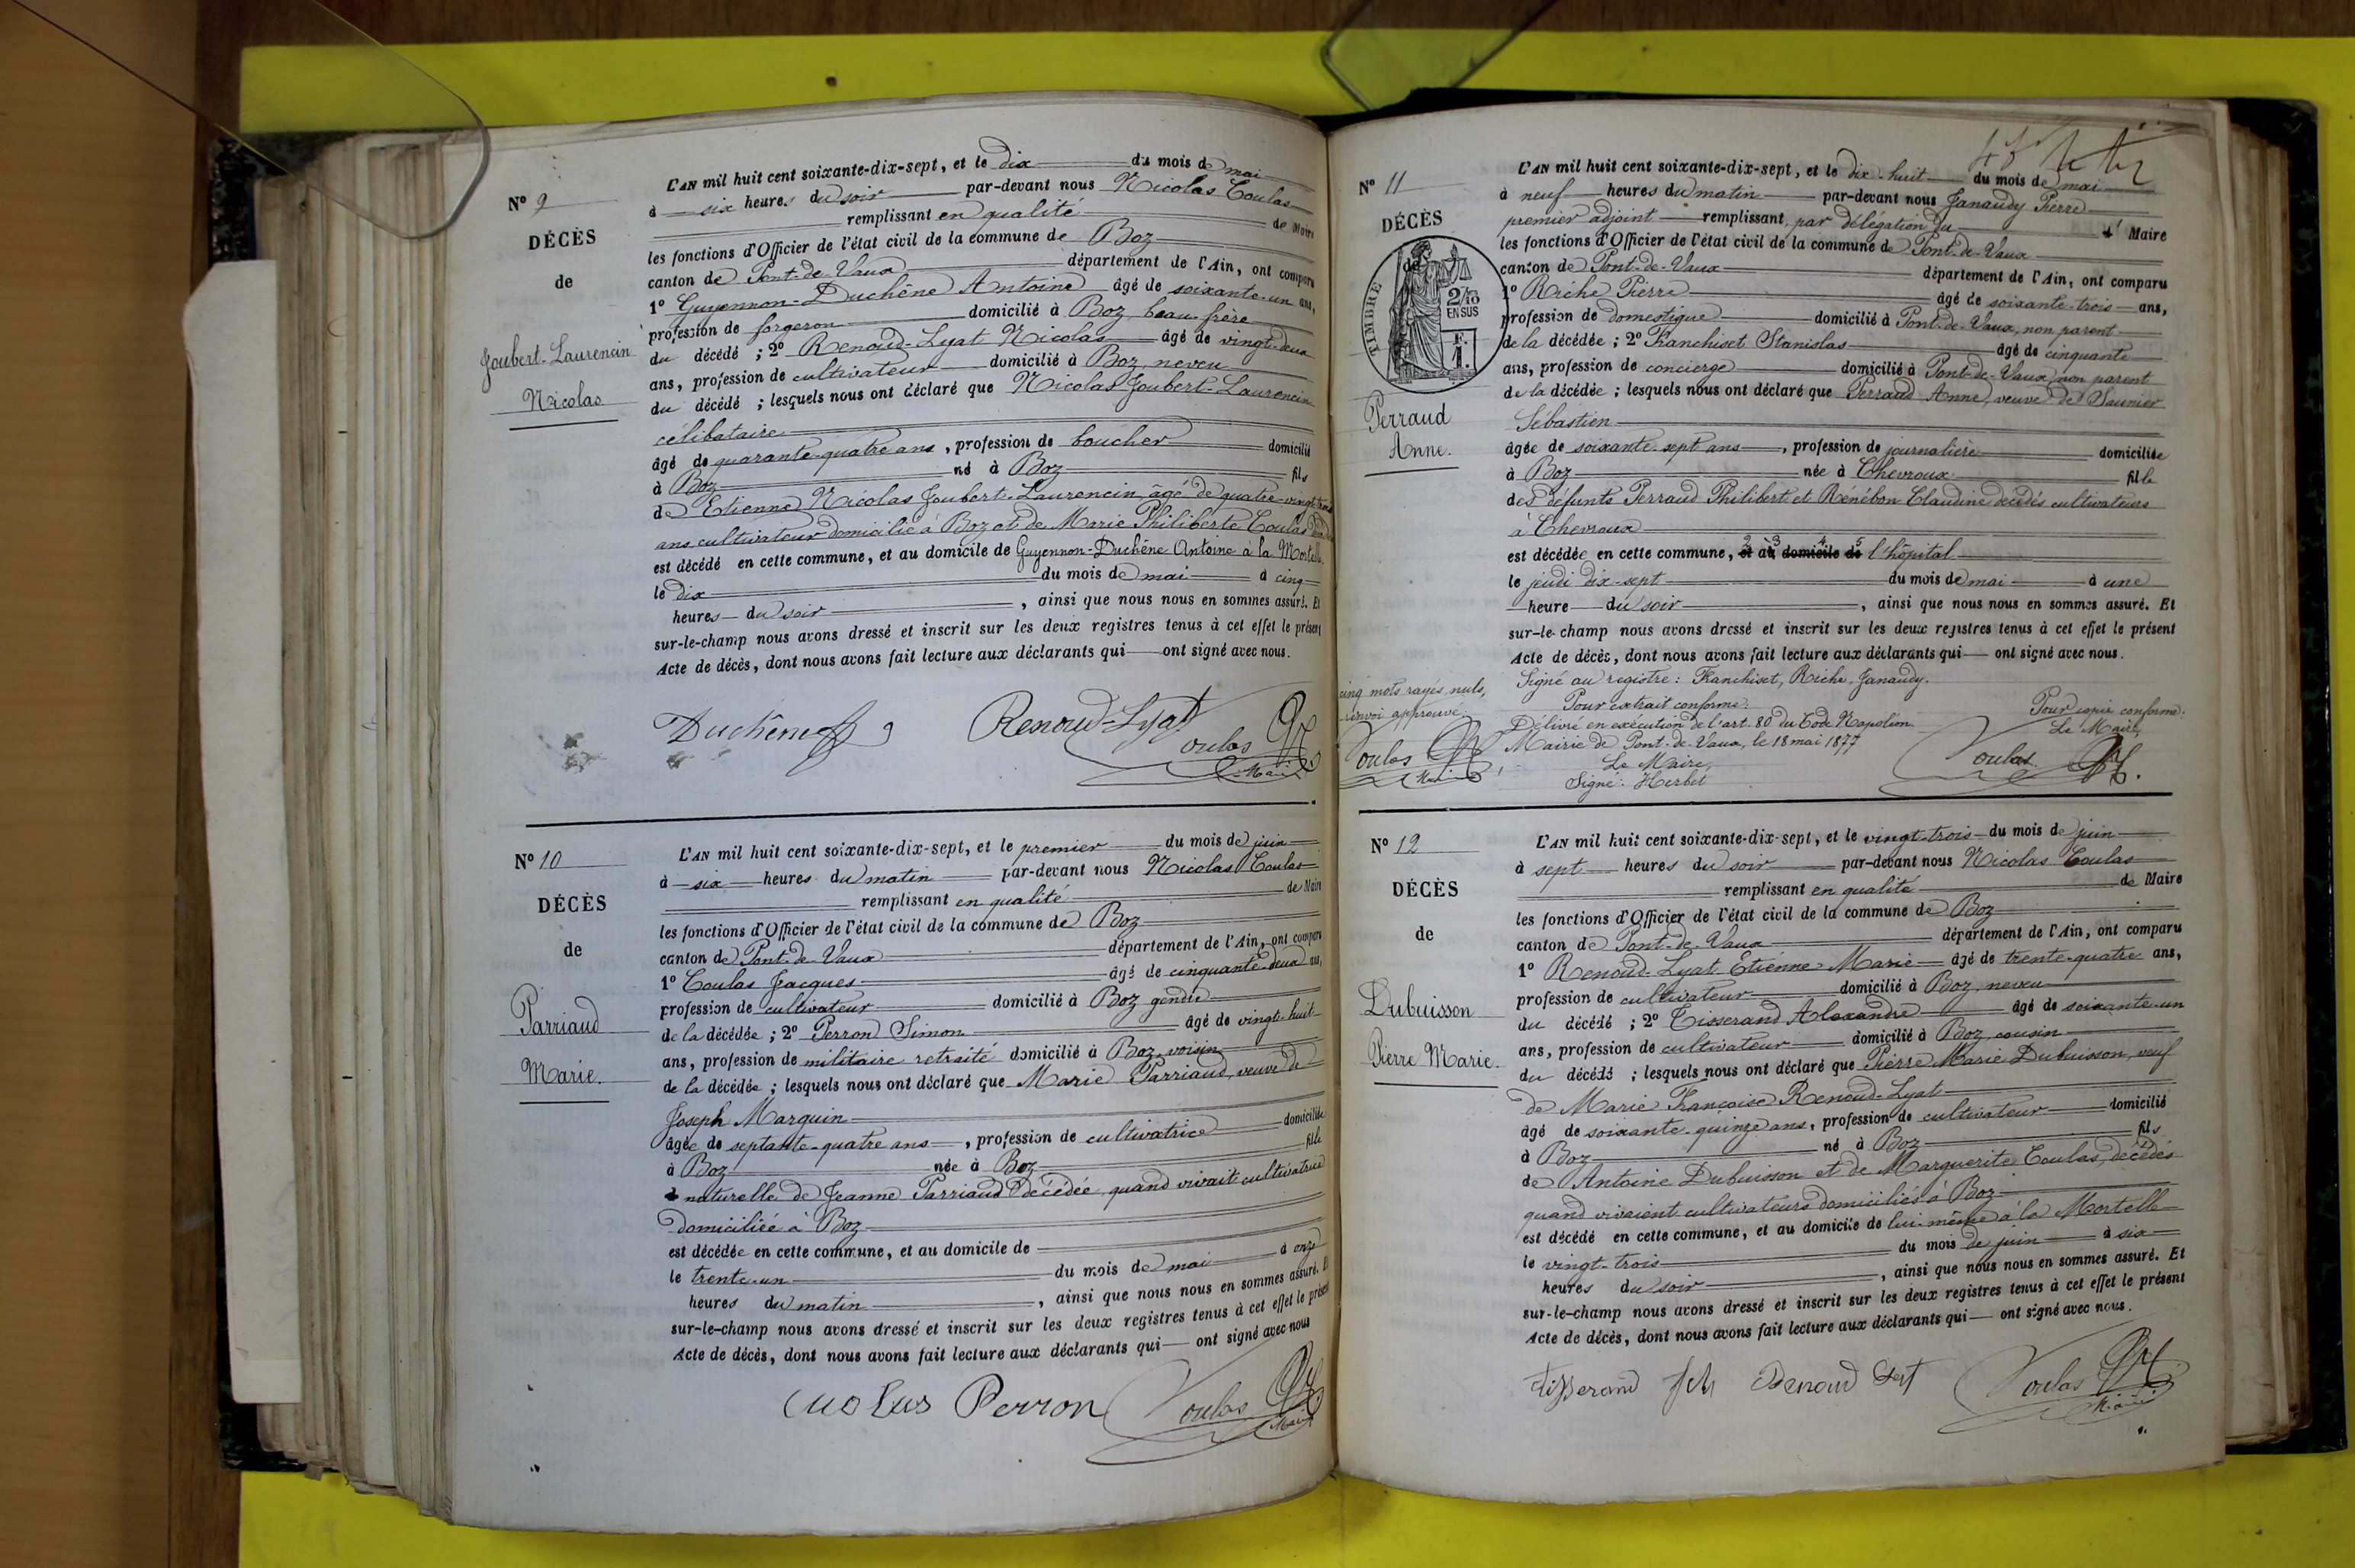 N° 9
DÉCÈS
de
Joubert-Laurencin
Nicolas
L'AN mil huit cent soixante-dix-sept, et le dix du mois de mai
à six heures du soir par-devant nous Nicolas Coulas
remplissant en qualité de Maire
les fonctions d'Officier de l'état civil de la commune de Boz
canton de Pont-de-Vaux département de l'Ain, ont comparu
1° Guyennon-Duchêne Antoine âgé de soixante-un ans,
profession de forgeron domicilié à Boz, beau-frère
du décédé ; 2° Renoud-Lyat Nicolas âgé de vingt-deux
ans, profession de cultivateur domicilié à Boz, neveu
du décédé ; lesquels nous ont déclaré que Nicolas Joubert-Laurencin
célibataire
âgé de quarante-quatre ans, profession de boucher domicilié
à Boz né à Boz fils
de Etienne Nicolas Joubert-Laurencin, âgé de quatre-vingt-trois
ans cultivateur domicilié à Boz et de Marie Philiberte Coulas
est décédé en cette commune, et au domicile de Guyennon-Duchêne Antoine à la Mortelle
le dix du mois de mai à cinq
heures du soir, ainsi que nous nous en sommes assuré. Et
sur-le-champ nous avons dressé et inscrit sur les deux registres tenus à cet effet le présent
Acte de décès, dont nous avons fait lecture aux déclarants qui ont signé avec nous.
Duchêne Renoud-Lyat
Coulas
Maire
N° 10
DÉCÈS
de
Parriaud
Marie.
L'AN mil huit cent soixante-dix-sept, et le premier du mois de juin
à six heures du matin par-devant nous Nicolas Coulas
remplissant en qualité de Maire
les fonctions d'Officier de l'état civil de la commune de Boz
canton de Pont-de-Vaux département de l'Ain, ont comparu
1° Coulas Jacques âgé de cinquante-deux ans,
profession de cultivateur domicilié à Boz gendre
de la décédée ; 2° Perron Simon âgé de vingt-huit
ans, profession de militaire retraité domicilié à Boz, voisin
de la décédée ; lesquels nous ont déclaré que Marie Parriaud, veuve de
Joseph Marguin
âgée de septante-quatre ans, profession de cultivatrice domiciliée
à Boz née à Boz fille
naturelle de Jeanne Parriaud décédée, quand vivait cultivatrice
domiciliée à Boz
est décédée en cette commune, et au domicile de
le trente-un du mois de mai à onze
heures du matin, ainsi que nous nous en sommes assuré. Et
sur-le-champ nous avons dressé et inscrit sur les deux registres tenus à cet effet le présent
Acte de décès, dont nous avons fait lecture aux déclarants qui ont signé avec nous
Perron Coulas
Maire
N° 11
DÉCÈS
de
TIMBRE
2/10
EN SUS
F.
1.
Perraud
Anne.
L'AN mil huit cent soixante-dix-sept, et le dix-huit du mois de mai
à neuf heures du matin par-devant nous Janaudy Pierre
premier adjoint remplissant, par délégation du Maire
les fonctions d'Officier de l'état civil de la commune de Pont-de-Vaux
canton de Pont-de-Vaux département de l'Ain, ont comparu
1° Riche Pierre âgé de soixante-trois ans,
profession de domestique domicilié à Pont-de-Vaux, non parent
de la décédée ; 2° Franchiset Stanislas âgé de cinquante
ans, profession de concierge domicilié à Pont-de-Vaux, non parent
de la décédée ; lesquels nous ont déclaré que Perraud Anne, veuve de Saunier
Sébastien
âgée de soixante sept ans, profession de journalière domiciliée
à Boz née à Chevroux fille
des défunts Perraud Philibert et Rénébon Claudine décédés cultivateurs
à Chevroux
est décédée en cette commune, et au domicile de l'hôpital
le jeudi dix-sept du mois de mai à une
heure du soir, ainsi que nous nous en sommes assuré. Et
sur-le-champ nous avons dressé et inscrit sur les deux registres tenus à cet effet le présent
Acte de décès, dont nous avons fait lecture aux déclarants qui ont signé avec nous.
Signé au registre : Franchiset, Riche, Janaudy.
Pour extrait conforme :
Délivré en exécution de l'art. 80 du Code Napoléon
Mairie de Pont-de-Vaux, le 18 mai 1877
Le Maire,
Signé : Herbet
cinq mots rayés nuls,
renvoi approuvé.
Coulas
Maire
Pour copie conforme :
Le Maire,
Coulas
N° 12
DÉCÈS
de
Dubuisson
Pierre Marie.
L'AN mil huit cent soixante-dix-sept, et le vingt-trois du mois de juin
à sept heures du soir par-devant nous Nicolas Coulas
remplissant en qualité de Maire
les fonctions d'Officier de l'état civil de la commune de Boz
canton de Pont-de-Vaux département de l'Ain, ont comparu
1° Renoud-Lyat Etienne Marie âgé de trente-quatre ans,
profession de cultivateur domicilié à Boz, neveu
du décédé ; 2° Tisserand Alexandre âgé de soixante-un
ans, profession de cultivateur domicilié à Boz, cousin
du décédé ; lesquels nous ont déclaré que Pierre Marie Dubuisson, veuf
de Marie Françoise Renoud-Lyat
âgé de soixante-quinze ans, profession de cultivateur domicilié
à Boz né à Boz fils
de Antoine Dubuisson et de Marguerite Coulas, décédés
quand vivaient cultivateurs domiciliés à Boz
est décédé en cette commune, et au domicile de lui-même à la Mortelle
le vingt-trois du mois de juin à six
heures du soir, ainsi que nous nous en sommes assuré. Et
sur-le-champ nous avons dressé et inscrit sur les deux registres tenus à cet effet le présent
Acte de décès, dont nous avons fait lecture aux déclarants qui ont signé avec nous.
Tisserand Renoud Coulas
Maire